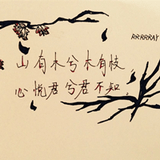 RRRRRAY
山有木兮木有枝
心悦君兮君不知.